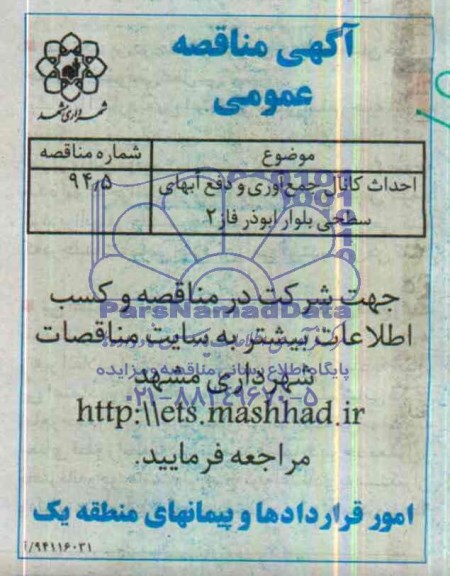 آگهی مناقصه
عمومی
شهرداری مشهد
موضوع
شماره مناقصه
احداث کانال جمع‌آوری و دفع آبهای
سطحی بلوار ابوذر فاز ۲
۹۴٫۵
جهت شرکت در مناقصه و کسب
ParsNamadData
اطلاعات بیشتر به سایت مناقصات
پایگاه اطلاع رسانی مناقصه و مزایده
شهرداری مشهد
۰۲۱-۸۸۳۴۹۶۷۰-۵
http:\\ets.mashhad.ir
مراجعه فرمایید.
امور قراردادها و پیمانهای منطقه یک
/۹۴۱۱۶۰۳۱آ